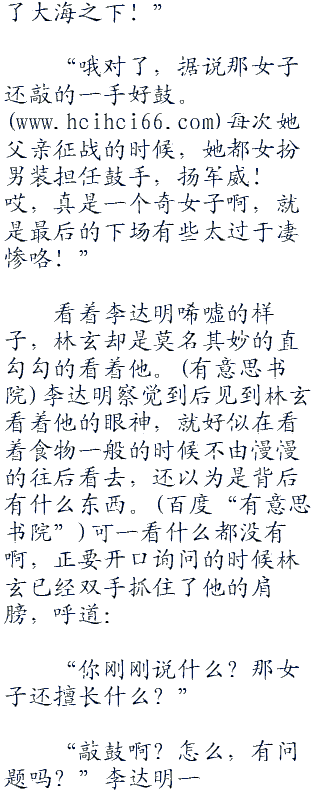 了大海之下！”
“哦对了，据说那女子
还敲的一手好鼓。
(www.hcihci66.com)每次她
父亲征战的时候，她都女扮
男装担任鼓手，扬军威！
哎，真是一个奇女子啊，就
是最后的下场有些太过于凄
惨咯！”
看着李达明唏嘘的样
子，林玄却是莫名其妙的直
勾勾的看着他。(有意思书
院)李达明察觉到后见到林玄
看着他的眼神，就好似在看
着食物一般的时候不由慢慢
的往后看去，还以为是背后
有什么东西。(百度“有意思
书院”)可一看什么都没有
啊，正要开口询问的时候林
玄已经双手抓住了他的肩
膀，呼道：
“你刚刚说什么？那女
子还擅长什么？”
“敲鼓啊？怎么，有问
题吗？”李达明一